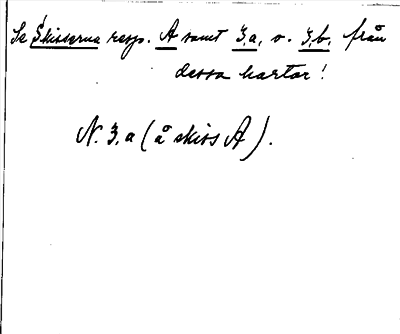 Se Skisserna resp. A samt 3.a. o. 3.b. från
dessa kartor!
N. 3.a (å skiss A).